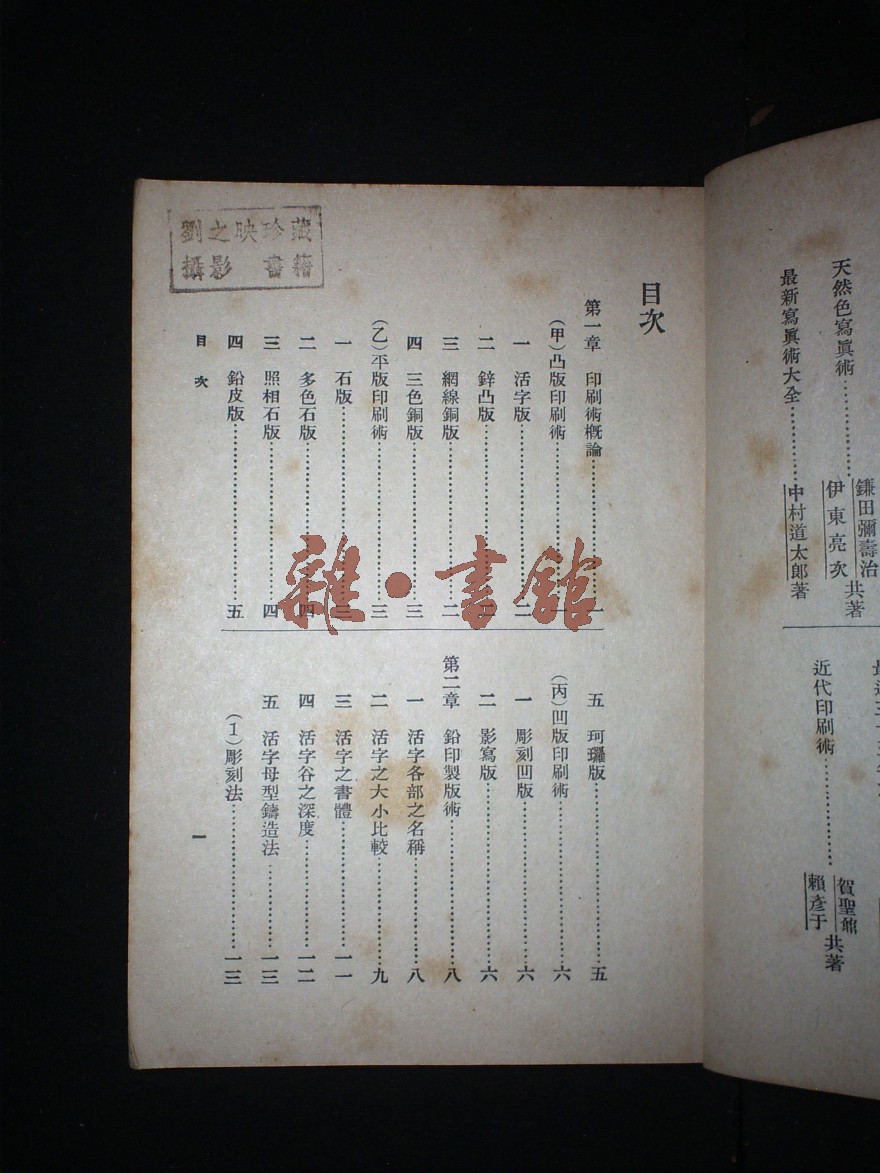 天然色寫眞術………鎌田彌壽治 伊東亮次 共著
最新寫眞術大全………中村道太郎著
近代印刷術………賀聖鼐 賴彥于 共著
目次
第一章 印刷術概論………一
(甲)凸版印刷術………一
一 活字版………二
二 鋅凸版………二
三 網線銅版………二
四 三色銅版………三
(乙)平版印刷術………三
一 石版………三
二 多色石版………四
三 照相石版………四
四 鉛皮版………五
五 珂羅版………五
(丙)凹版印刷術………六
一 彫刻凹版………六
二 影寫版………六
第二章 鉛印製版術………八
一 活字各部之名稱………八
二 活字之大小比較………九
三 活字之書體………一一
四 活字谷之深度………一二
五 活字母型鑄造法………一三
(1)彫刻法………一三
目次
一
劉之映珍藏
攝影書籍
雜·書館